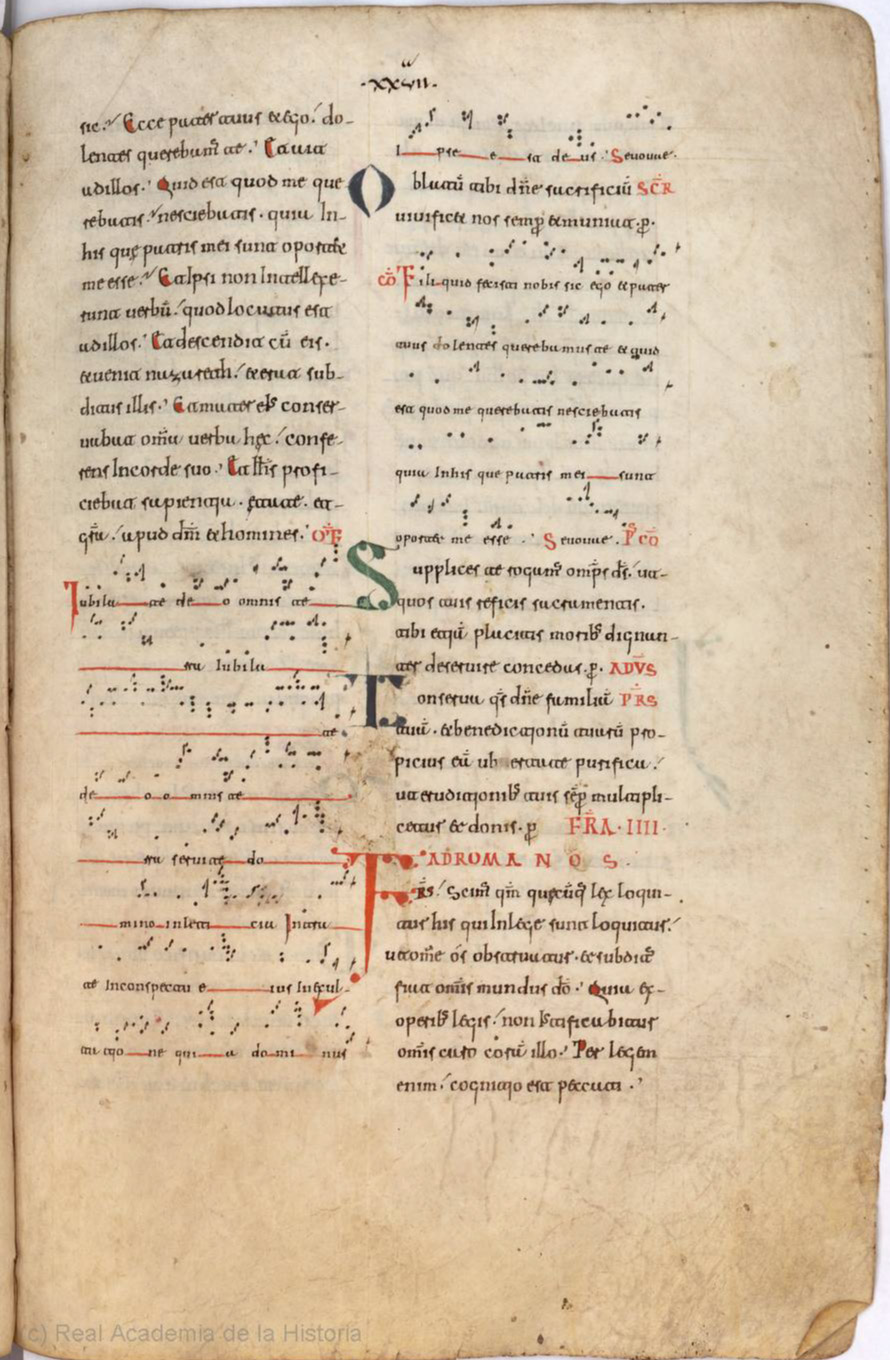 .xxvii.
sic. Ecce pater tuus et ego do-
lentes querebam̄ te. Et ait
ad illos. Quid est quod me que
rebatis nesciebatis. quia In-
his quę patris mei sunt oportet
me esse. Et ipsi non Intellexe-
runt uerbū. quod locutus est
ad illos. Et descendit cū eis.
et uenit nazareth. et erat sub-
ditus illis. Et mater eiꝰ conser-
uabat om̄a uerba hęc. confe-
rens In corde suo. Et ih̄s profi-
ciebat sapientia. ętate. et-
gr̄a. apud dm̄ et homines. OF̄
Iubila te de o omnis te
rra Iubila
te
de o o mnis te
rra seruite do
mino in leti cia Intra
te In conspectu e ius In exul-
ta tio ne qui a do mi nus
I pse e st de us. Seuouae.
Oblatū tibi dn̄e sacrificiū SCR̄
uiuificet nos semp̄ et muniat. p̄.
CŌ Fili quid fecisti nobis sic ego et pater
tuus dolentes querebamus te et quid
est quod me querebatis nesciebatis
quia In his que patris mei sunt
oportet me esse. Seuouae. P̄ CŌ
Supplices te rogam̄ omp̄s ds̄. ut-
quos tuis reficis sacramentis.
tibi etiā placitis moribꝰ dignan-
ter deseruire concedas. p̄. AD V̄S
Conserua qs̄ dn̄e familiā P̄RS
tuā. et benedictionū tuarū pro-
picius eā ubertate purifica.
ut eruditionibꝰ tuis sēp multipli-
cetur et donis. p̄ FR̄A. IIII.
AD ROMANOS.
F̄RS. Scim̄ qm̄ quęcūq̄ lex loqui-
tur his qui In lege sunt loquitur.
ut om̄e ōs obstruatur. et subdit̄
fiat om̄is mundus dō. Quia ex-
operibꝰ legis. non iustificabitur
om̄is caro corā illo. Per legem
enim. cognitio est peccati.
(c) Real Academia de la Historia